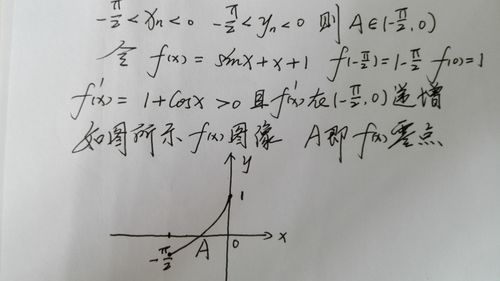 -π/2 < xₙ < 0  -π/2 < yₙ < 0 则 A∈(-π/2, 0)
令 f(x) = sinx + x + 1  f(-π/2) = 1-π/2  f(0) = 1
f'(x) = 1 + cosx > 0 且 f'(x) 在 (-π/2, 0) 递增
如图所示 f(x) 图像  A即 f(x) 零点
y
1
-π/2 A 0 x